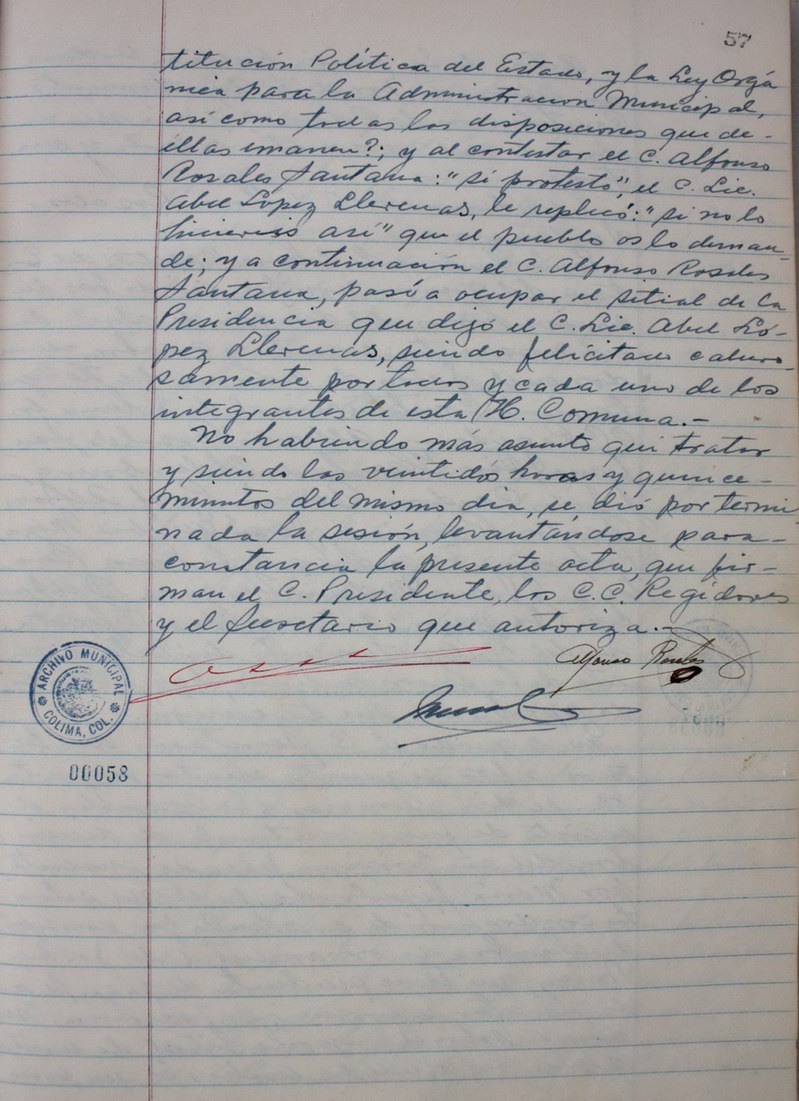 57
titución Política del Estado, y la Ley Orgá
nica para la Administracion Municipal,
así como todas las disposiciones que de-
ellas emanen?; y al contestar el C. Alfonso
Rosales Santana: "si protesto", el C. Lic.
Abel Lopez Llerenas, le replicó: "si no lo
hiciereis así" que el pueblo os lo deman-
de; y a continuación el C. Alfonso Rosales
Santana, pasó a ocupar el sitial de la
Presidencia que dejó el C. Lic. Abel Ló-
pez Llerenas, siendo felicitado caluro-
samente por todos y cada uno de los
integrantes de esta H. Comuna.-
No habiendo más asunto que tratar
y siendo las veintidos horas y quince-
minutos del mismo dia, se dió por termi
nada la sesión, levantándose para-
constancia la presente acta, que fir-
man el C. Presidente, los C.C. Regidores
y el Secretario que autoriza.-
Alfonso Rosales
ARCHIVO MUNICIPAL
COLIMA, COL.
00058